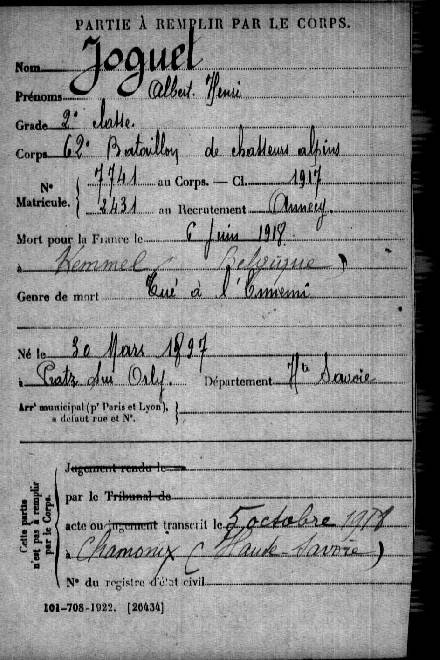 PARTIE À REMPLIR PAR LE CORPS.
Nom Joguet
Prénoms Albert Henri
Grade 2e classe.
Corps 62e Bataillon de chasseurs alpins
No Matricule. { 7741 au Corps. — Cl. 1917
2431 au Recrutement Annecy
Mort pour la France le 6 Juin 1918
à Kemmel ( Belgique )
Genre de mort Tué à l'Ennemi
Né le 30 Mars 1897
à Pratz sur Orly. Département Hte Savoie
Arrt municipal (pr Paris et Lyon), }
à défaut rue et No.
Cette partie n'est pas à remplir par le Corps.
Jugement rendu le
par le Tribunal de
acte ou jugement transcrit le 5 octobre 1918
à Chamonix ( Haute-Savoie )
No du registre d'état civil
101-708-1922. [26434]